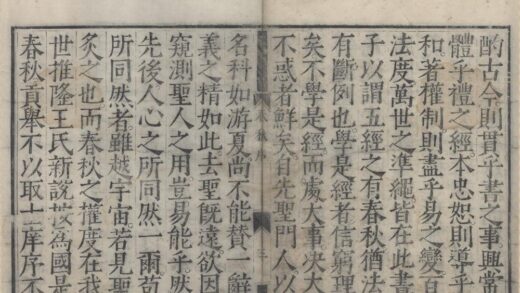 酌古今則貫乎書之事興常
體乎禮之經本忠恕則導乎
和著權制則盡乎易之變百
法度萬世之準繩皆在此書
子以謂五經之有春秋猶法
有斷例也學是經者信窮理
矣不學是經而處大事決大
不惑者鮮矣自先聖門人以
春秋序
三
名科如游夏尚不能贊一辭
義之精如此去聖既遠欲因
窺測聖人之用豈易能乎然
先後人心之所同然一爾苟
所同然者雖越宇宙若見聖
炙之也而春秋之權度在我
世推隆王氏新說按為國是
春秋貢舉不以取士庠序不